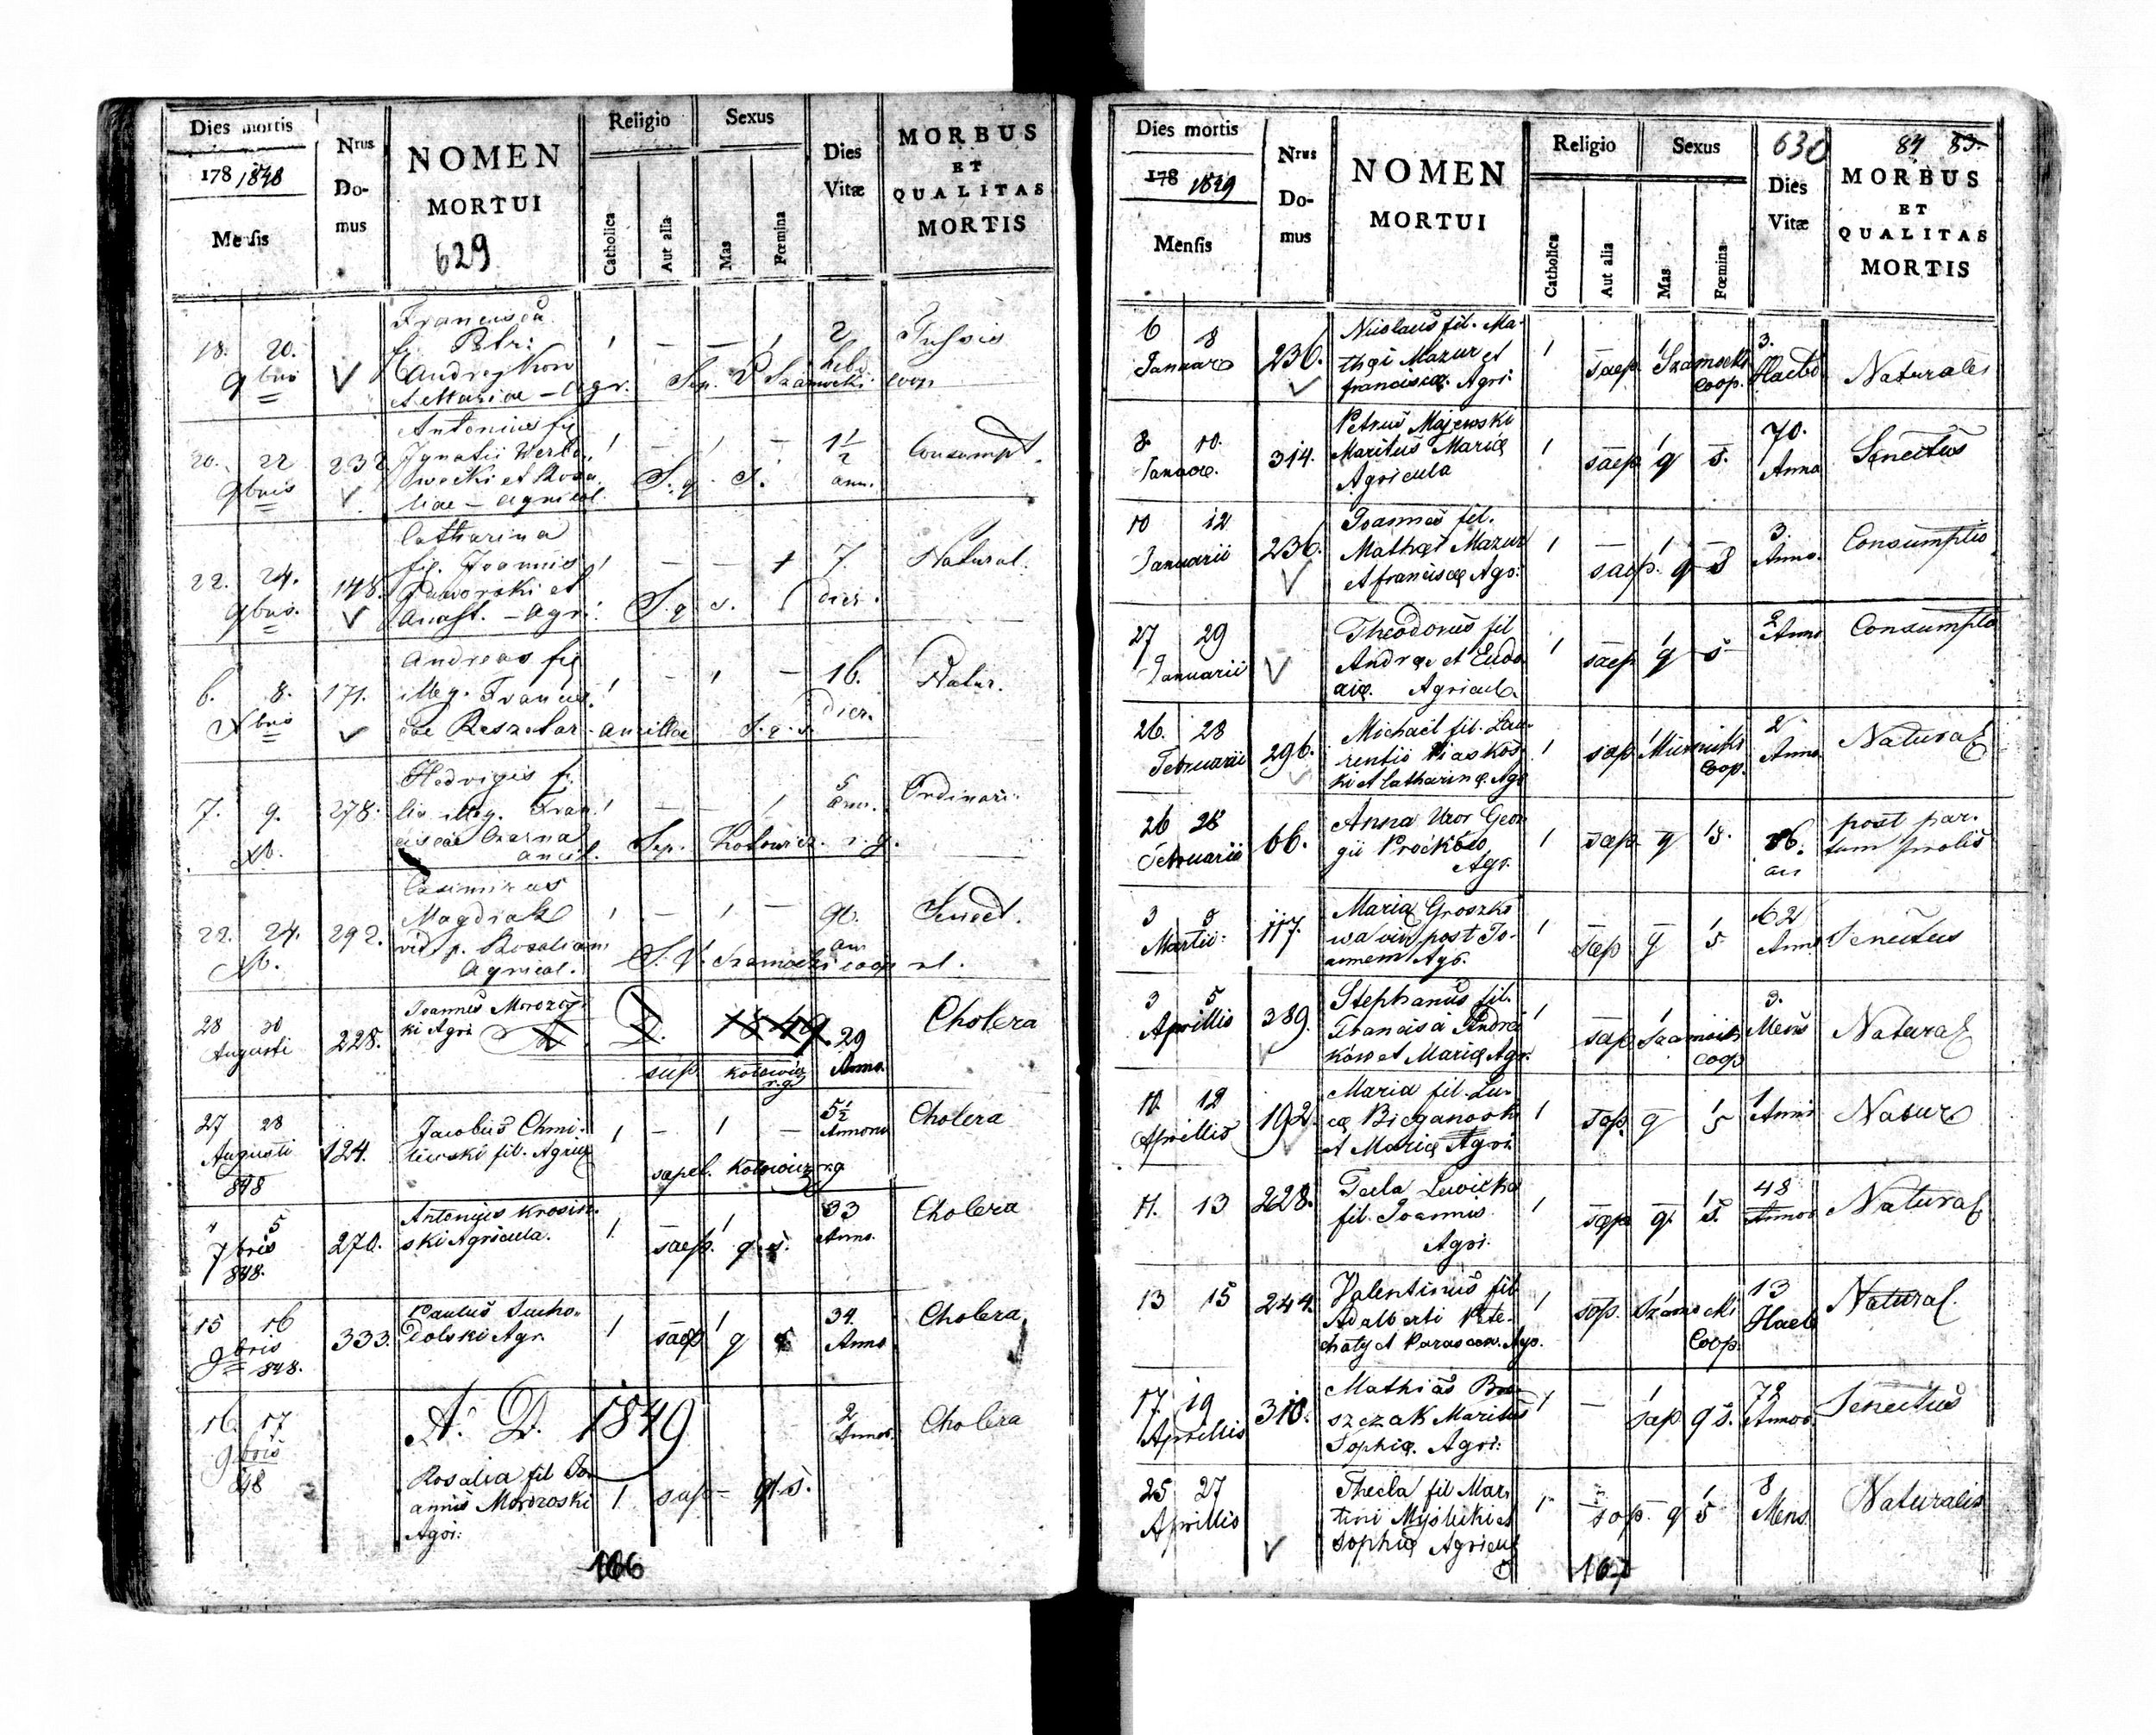 Dies mortis
178 1848
Mensis
Nrus
Do-
mus
NOMEN
MORTUI
629
Religio
Catholica
Aut alia
Sexus
Mas
Fœmina
Dies
Vitæ
MORBUS
ET
QUALITAS
MORTIS
18. 20.
9bris
Francisca
f. Petri
Andrejkow
et Mariae - agr.
Sep. V. Szamocki coop
2
hebd.
Tussis
20. 22
9bris
232
Antonius fil
Ignatii Werbo-
wecki et Rosa-
liae - agricol.
S. q. s.
1 1/2
ann.
Consumpt.
22. 24.
9bris.
148.
Catharina
fil. Joannis
Jaworski et
Anast. - agri.
S. q. s.
7
dier.
Natural.
6. 8.
Xbris
171.
Andreas fil
illeg. Francis-
cae Reszetar - ancillae
S. q. s.
16.
dier.
Natur.
7. 9.
Xb.
278.
Hedvigis fi-
lia illeg. Fran-
ciscae Czarna
ancil.
Sep. Kotowicz r. g.
5
ann.
Ordinari.
22. 24.
Xb.
292.
Casimirus
Magdiak
vid. p. Rosaliam
Agricol.
S. V. Szamocki coop
90.
ann
Senect.
28 30
Augusti
228.
Joannes Morozow-
ki Agri
A. D. 1849
sup. Kotowicz
r. g.
29
Anno.
Cholera
27 28
Augusti
848
124.
Jacobus Chmi-
lewski fil. Agric
sapel. Kotowicz r. g.
5 1/2
Annorum
Cholera
4 5
7bris
848.
270.
Antonius Krosin-
ski Agricula.
saep. q. s.
33
Anno.
Cholera
15 16
9bris
848.
333.
Paulus Sucho-
dolski Agr.
saep q s
34.
Anno
Cholera
16. 17
9bris
848
A. D. 1849
Rosalia fil Jo-
annis Morozoski
Agri:
sap q. s.
2
Annor.
Cholera
166
Dies mortis
178 1849
Mensis
Nrus
Do-
mus
NOMEN
MORTUI
Religio
Catholica
Aut alia
Sexus
Mas
Fœmina
630
Dies
Vitæ
84 83.
MORBUS
ET
QUALITAS
MORTIS
6 8
Januar
236.
Nicolaus fil. Ma-
thæi Mazur et
franciscæ. Agri.
saep. Szamocki
Coop.
3.
Haebd
Naturalis
8 10.
Januar.
314.
Petrus Majewski
Maritus Mariæ
Agricula
saep q s.
70.
Anno
Senectus
10 12
Januarii
236.
Joannes fil.
Mathæi Mazur
et franciscæ Agri.
saep. q s
3.
Anno.
Consumptio
27 29
Januarii
Theodorus fil
Andræ et Eudo-
ciæ. Agricul.
saep q s
2
Anno
Consumptio
26. 28
Februarii
296.
Michael fil. Lau-
rentii Piaskos-
ki et Catharinæ. Agr
sap
Coop.
2
Anno.
Natural
26 28
Februarii
66.
Anna Uxor Geor-
gii Proćków
Agr.
sap q s.
36.
an
post par-
tum prolis
3 5
Martii.
117.
Maria Groszko-
wa vid post Jo-
annem Agr.
sap q s
62
Anno
Senectus
3 5
Aprillis
389.
Stephanus fil.
Francisci Andrei-
ków et Mariæ Agr.
sap Szamocki
Coop
3.
Mens
Natural
10. 12
Aprillis
192.
Maria fil. Lu-
cæ Bieganoski
et Mariæ Agri.
sap. q s
1
Anni
Natur
11. 13
228.
Tecla Lewicka
fil. Joannis
Agri.
sap q. s.
48
Annor
Natural
13 15
244.
Valentinus fil
Adalberti Pete-
chaty et Parascev. Agr.
sap. Szamocki
Coop.
13
Haeb
Natural.
17. 19
Aprillis
310.
Mathias Bar-
szczak Maritus
Sophiæ. Agri:
sap q s.
72
Annor.
Senectus
25 27
Aprillis
Thecla fil Mar-
tini Myślicki et
Sophiæ Agricul
sap. q s
8
Mens
Naturalis
167